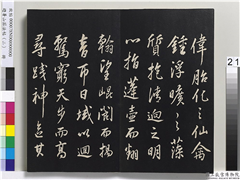 偉胎化之仙禽
鍾浮曠之藻
質抱清迥之明
心指蓬壺而翻
翰望崐閬而揚
音帀日域以迴
騖窮天步而高
尋踐神區其
21